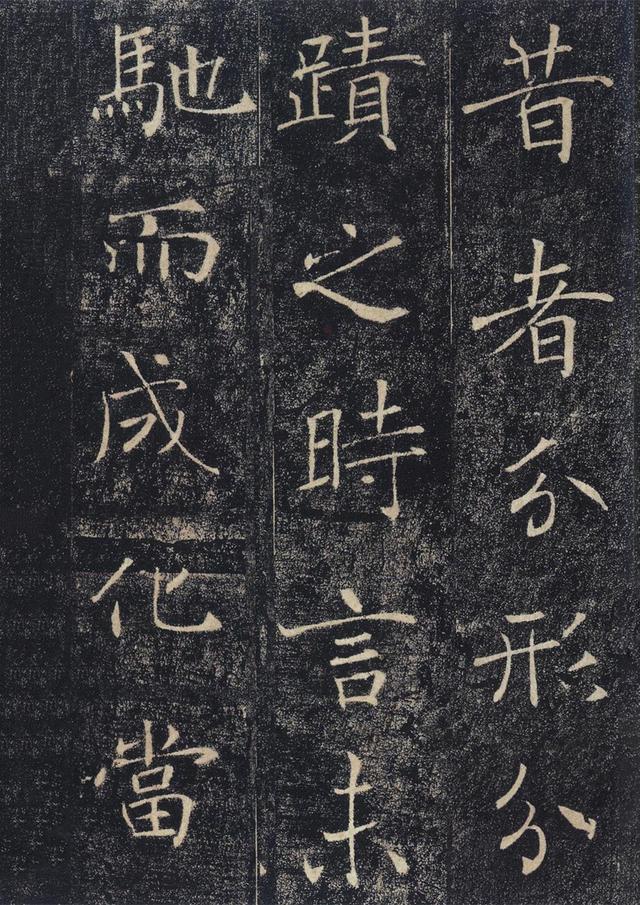 昔者分形分
蹟之時言未
馳而成化當